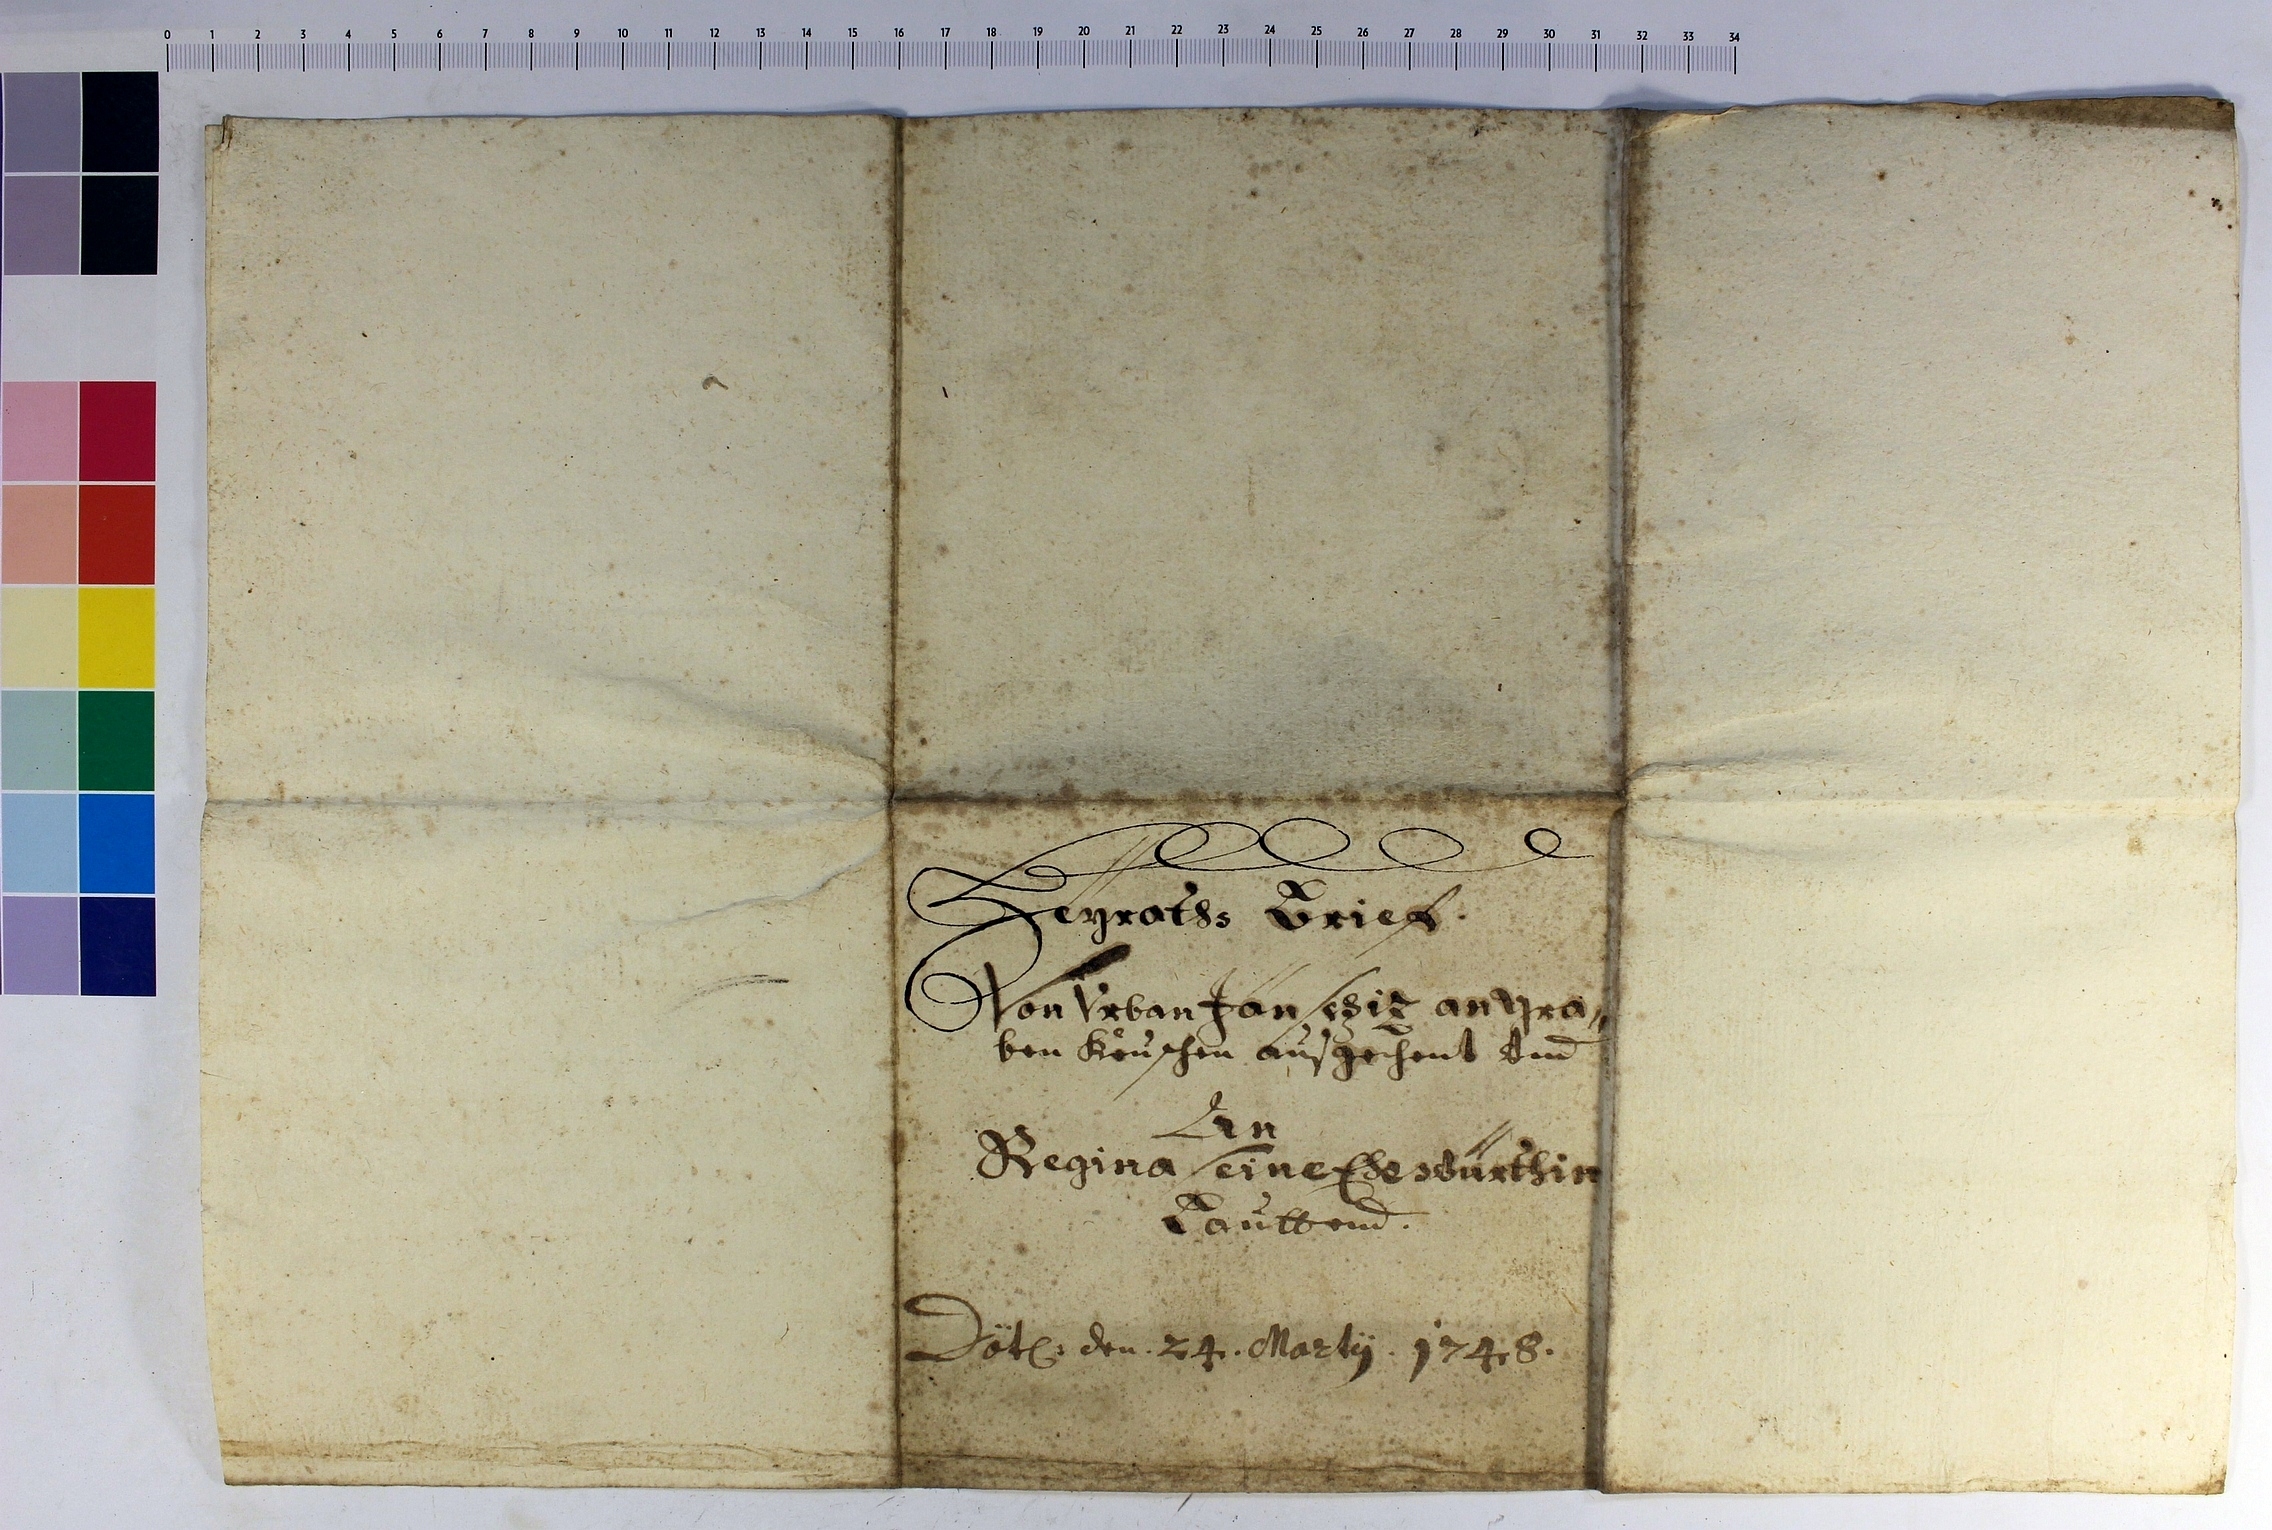 0 1 2 3 4 5 6 7 8 9 10 11 12 13 14 15 16 17 18 19 20 21 22 23 24 25 26 27 28 29 30 31 32 33 34
Heyraths Brief.
Von Vrban Jan
ben Keuschen ausgehent vnd
An
Regina seine Ehewürthin
Lauttend.
Dat: den. 24. Martij. 1748.